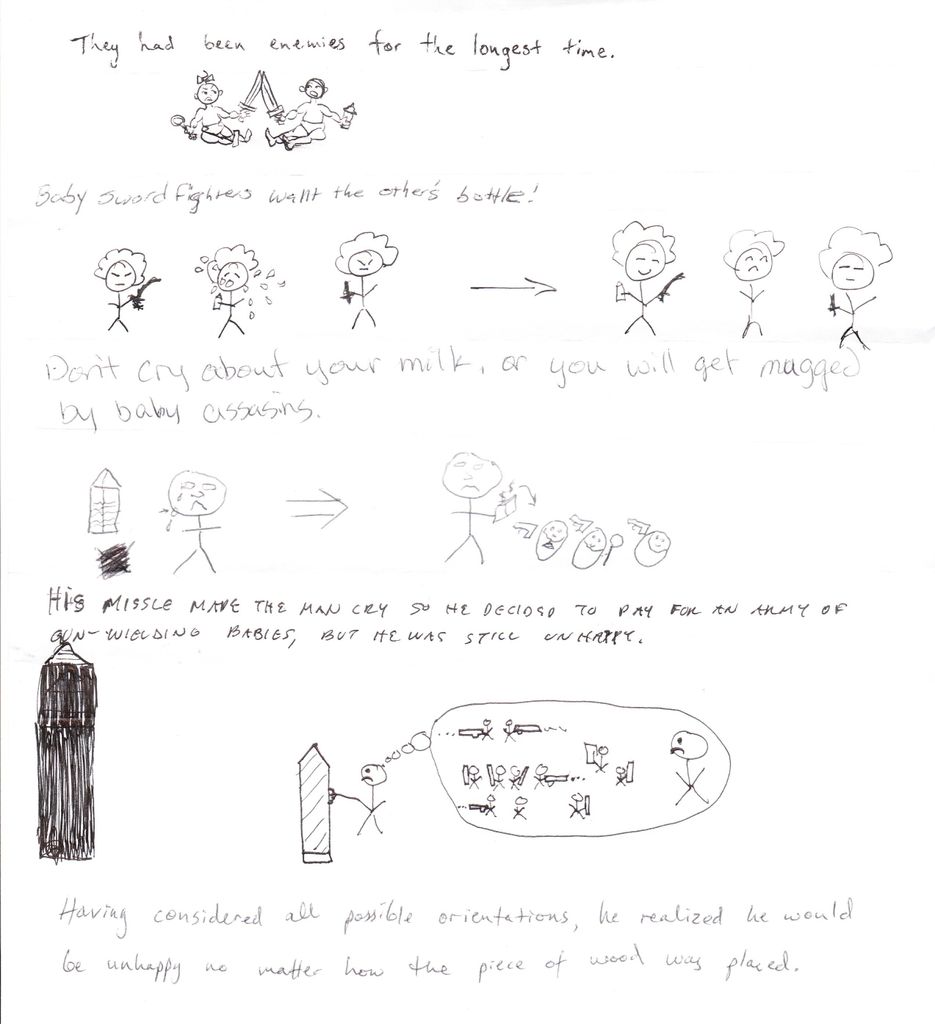 They had been enemies for the longest time.
Baby sword fighters want the other's bottle!
Don't cry about your milk, or you will get mugged
by baby assasins.
HIS MISSLE MADE THE MAN CRY SO HE DECIDED TO PAY FOR AN ARMY OF
GUN-WIELDING BABIES, BUT HE WAS STILL UNHAPPY.
Having considered all possible orientations, he realized he would
be unhappy no matter how the piece of wood was placed.